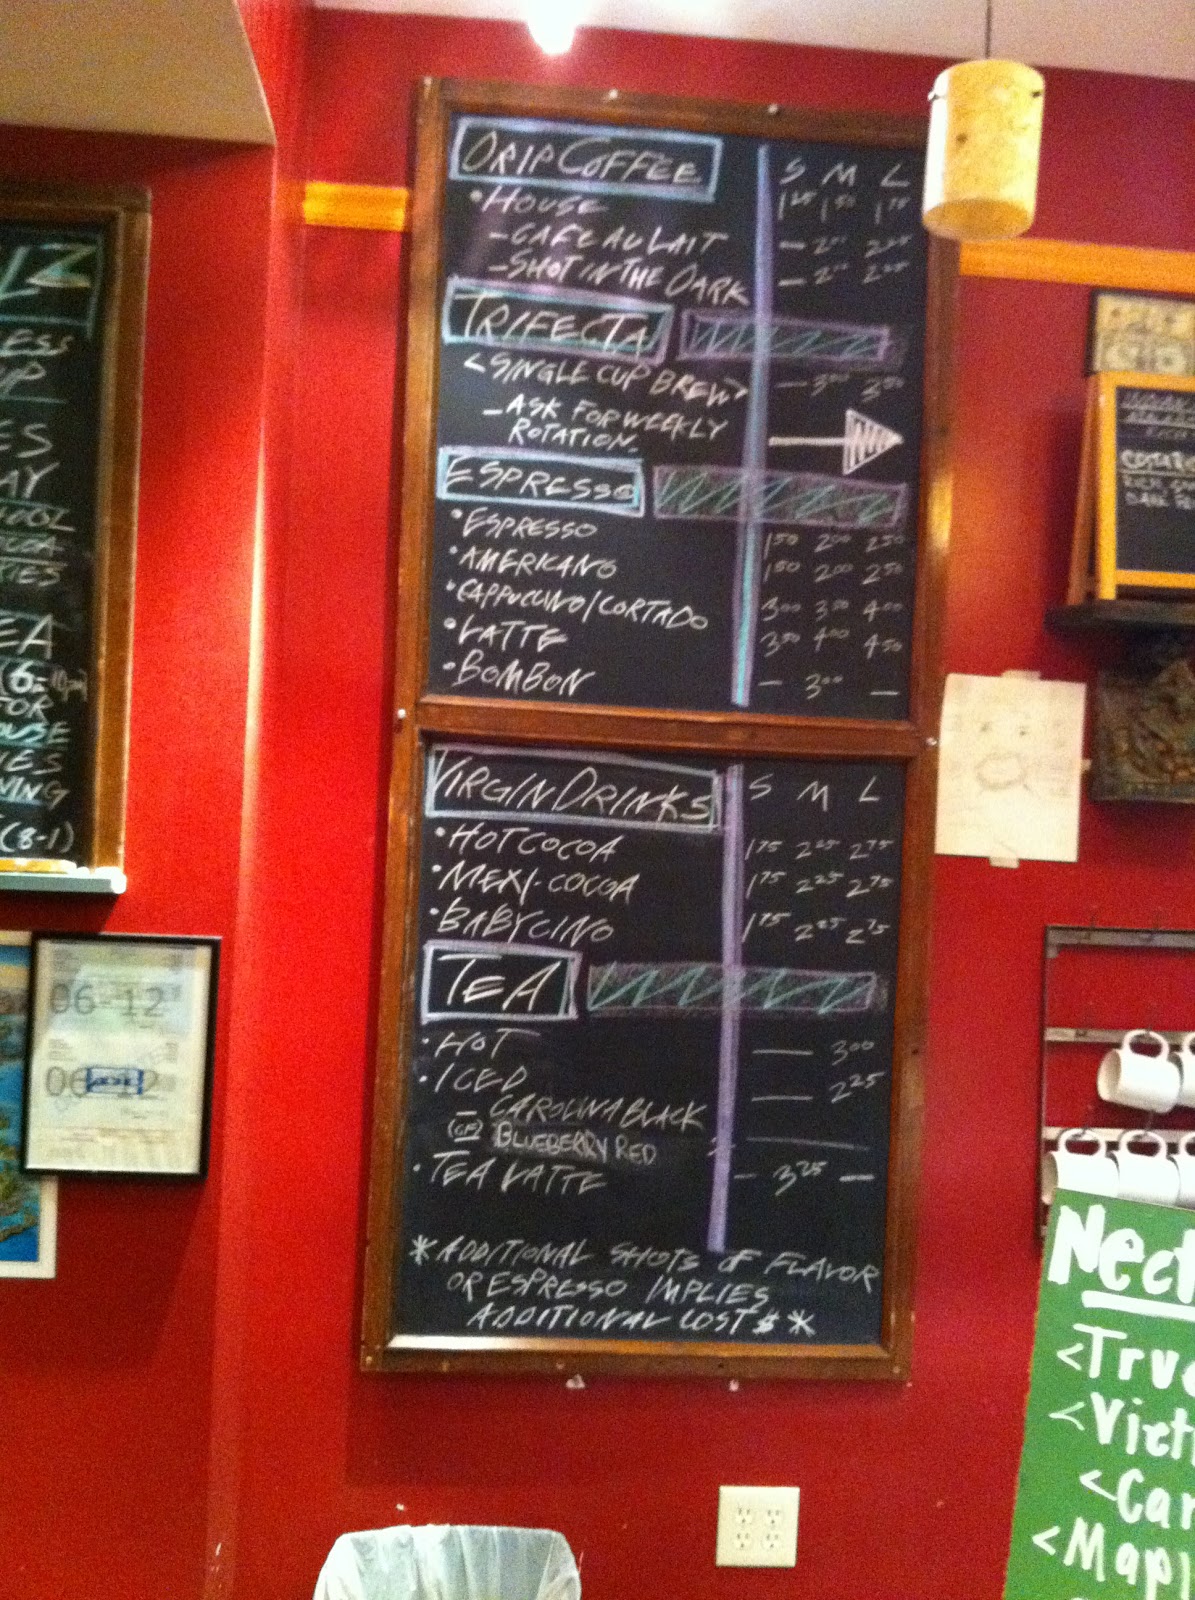 DRIP COFFEE S M L
• HOUSE 1 25 1 50 1 75
- CAFE AU LAIT — 2 00 2 25
- SHOT IN THE DARK — 2 00 2 25
TRIFECTA
<SINGLE CUP BREW> — 3 00 3 50
- ASK FOR WEEKLY
ROTATION.
ESPRESSO
• ESPRESSO 1 50 2 00 2 50
• AMERICANO 1 50 2 00 2 50
• CAPPUCCINO/CORTADO 3 00 3 50 4 00
• LATTE 3 50 4 00 4 50
• BOMBON — 3 00 —
VIRGIN DRINKS S M L
• HOT COCOA 1 75 2 25 2 75
• MEXI-COCOA 1 75 2 25 2 75
• BABYCINO 1 75 2 25 2 75
TEA
• HOT — 3 00
• ICED — 2 25
- CAROLINA BLACK
(CF) BLUEBERRY RED
• TEA LATTE - 3 25 —
* ADDITIONAL SHOTS OF FLAVOR
OR ESPRESSO IMPLIES
ADDITIONAL COST $ *
ESS
UP
ES
AY
OOL
COA
TIES
EA
(6-10pm)
FOR
OUSE
IES
VING
(8-1)
06-12
Nect
<True
<Viet
<Car
<Mapl